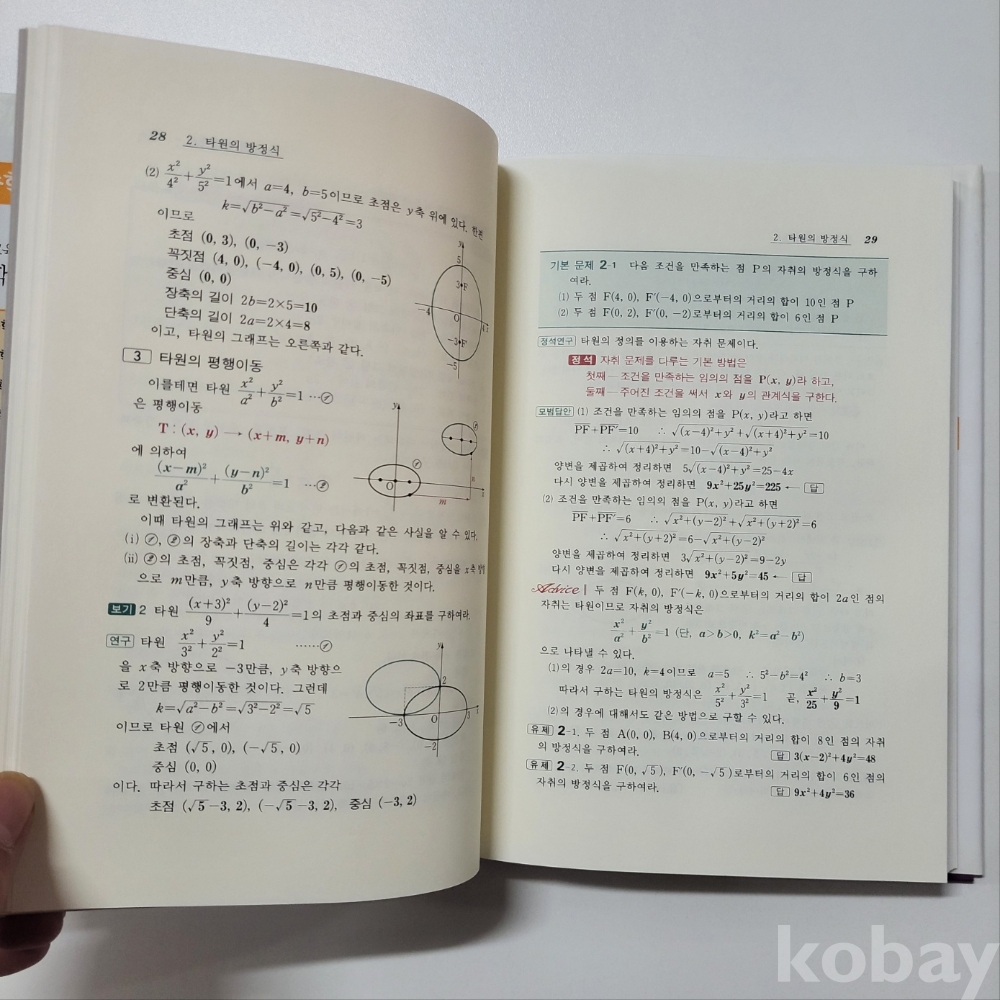 28 2. 타원의 방정식
(2) x²/4² + y²/5² =1에서 a=4, b=5이므로 초점은 y축 위에 있다. 한편
k=√(b²−a²)=√(5²−4²)=3
이므로
초점 (0, 3), (0, −3)
꼭짓점 (4, 0), (−4, 0), (0, 5), (0, −5)
중심 (0, 0)
장축의 길이 2b=2×5=10
단축의 길이 2a=2×4=8
이고, 타원의 그래프는 오른쪽과 같다.
y
5
3 F
−4 O 4
−3 F′
−5
3 타원의 평행이동
이를테면 타원 x²/a² + y²/b² =1 …㉠
은 평행이동
T : (x, y) → (x+m, y+n)
에 의하여
(x−m)²/a² + (y−n)²/b² =1 …㉡
로 변환된다.
y
㉡
㉠
n
O
m
x
이때 타원의 그래프는 위와 같고, 다음과 같은 사실을 알 수 있다.
(i) ㉠, ㉡의 장축과 단축의 길이는 각각 같다.
(ii) ㉡의 초점, 꼭짓점, 중심은 각각 ㉠의 초점, 꼭짓점, 중심을 x축 방향
으로 m만큼, y축 방향으로 n만큼 평행이동한 것이다.
보기 2 타원 (x+3)²/9 + (y−2)²/4 =1의 초점과 중심의 좌표를 구하여라.
연구 타원 x²/3² + y²/2² =1 ……㉠
을 x축 방향으로 −3만큼, y축 방향으
로 2만큼 평행이동한 것이다. 그런데
k=√(a²−b²)=√(3²−2²)=√5
이므로 타원 ㉠에서
초점 (√5, 0), (−√5, 0)
중심 (0, 0)
y
2
−3 O 3 x
−2
이다. 따라서 구하는 초점과 중심은 각각
초점 (√5−3, 2), (−√5−3, 2), 중심 (−3, 2)
2. 타원의 방정식 29
기본 문제 2-1 다음 조건을 만족하는 점 P의 자취의 방정식을 구하
여라.
(1) 두 점 F(4, 0), F′(−4, 0)으로부터의 거리의 합이 10인 점 P
(2) 두 점 F(0, 2), F′(0, −2)로부터의 거리의 합이 6인 점 P
정석연구 타원의 정의를 이용하는 자취 문제이다.
정석 자취 문제를 다루는 기본 방법은
첫째 — 조건을 만족하는 임의의 점을 P(x, y)라 하고,
둘째 — 주어진 조건을 써서 x와 y의 관계식을 구한다.
모범답안 (1) 조건을 만족하는 임의의 점을 P(x, y)라고 하면
PF+PF′=10 ∴ √((x−4)²+y²)+√((x+4)²+y²)=10
∴ √((x+4)²+y²)=10−√((x−4)²+y²)
양변을 제곱하여 정리하면 5√((x−4)²+y²)=25−4x
다시 양변을 제곱하여 정리하면 9x²+25y²=225 ← 답
(2) 조건을 만족하는 임의의 점을 P(x, y)라고 하면
PF+PF′=6 ∴ √(x²+(y−2)²)+√(x²+(y+2)²)=6
∴ √(x²+(y+2)²)=6−√(x²+(y−2)²)
양변을 제곱하여 정리하면 3√(x²+(y−2)²)=9−2y
다시 양변을 제곱하여 정리하면 9x²+5y²=45 ← 답
Advice | 두 점 F(k, 0), F′(−k, 0)으로부터의 거리의 합이 2a인 점의
자취는 타원이므로 자취의 방정식은
x²/a² + y²/b² =1 (단, a>b>0, k²=a²−b²)
으로 나타낼 수 있다.
(1)의 경우 2a=10, k=4이므로 a=5 ∴ 5²−b²=4² ∴ b=3
따라서 구하는 타원의 방정식은 x²/5² + y²/3² =1 곧, x²/25 + y²/9 =1
(2)의 경우에 대해서도 같은 방법으로 구할 수 있다.
유제 2-1. 두 점 A(0, 0), B(4, 0)으로부터의 거리의 합이 8인 점의 자취
의 방정식을 구하여라. 답 3(x−2)²+4y²=48
유제 2-2. 두 점 F(0, √5), F′(0, −√5)로부터의 거리의 합이 6인 점의
자취의 방정식을 구하여라. 답 9x²+4y²=36
kobay